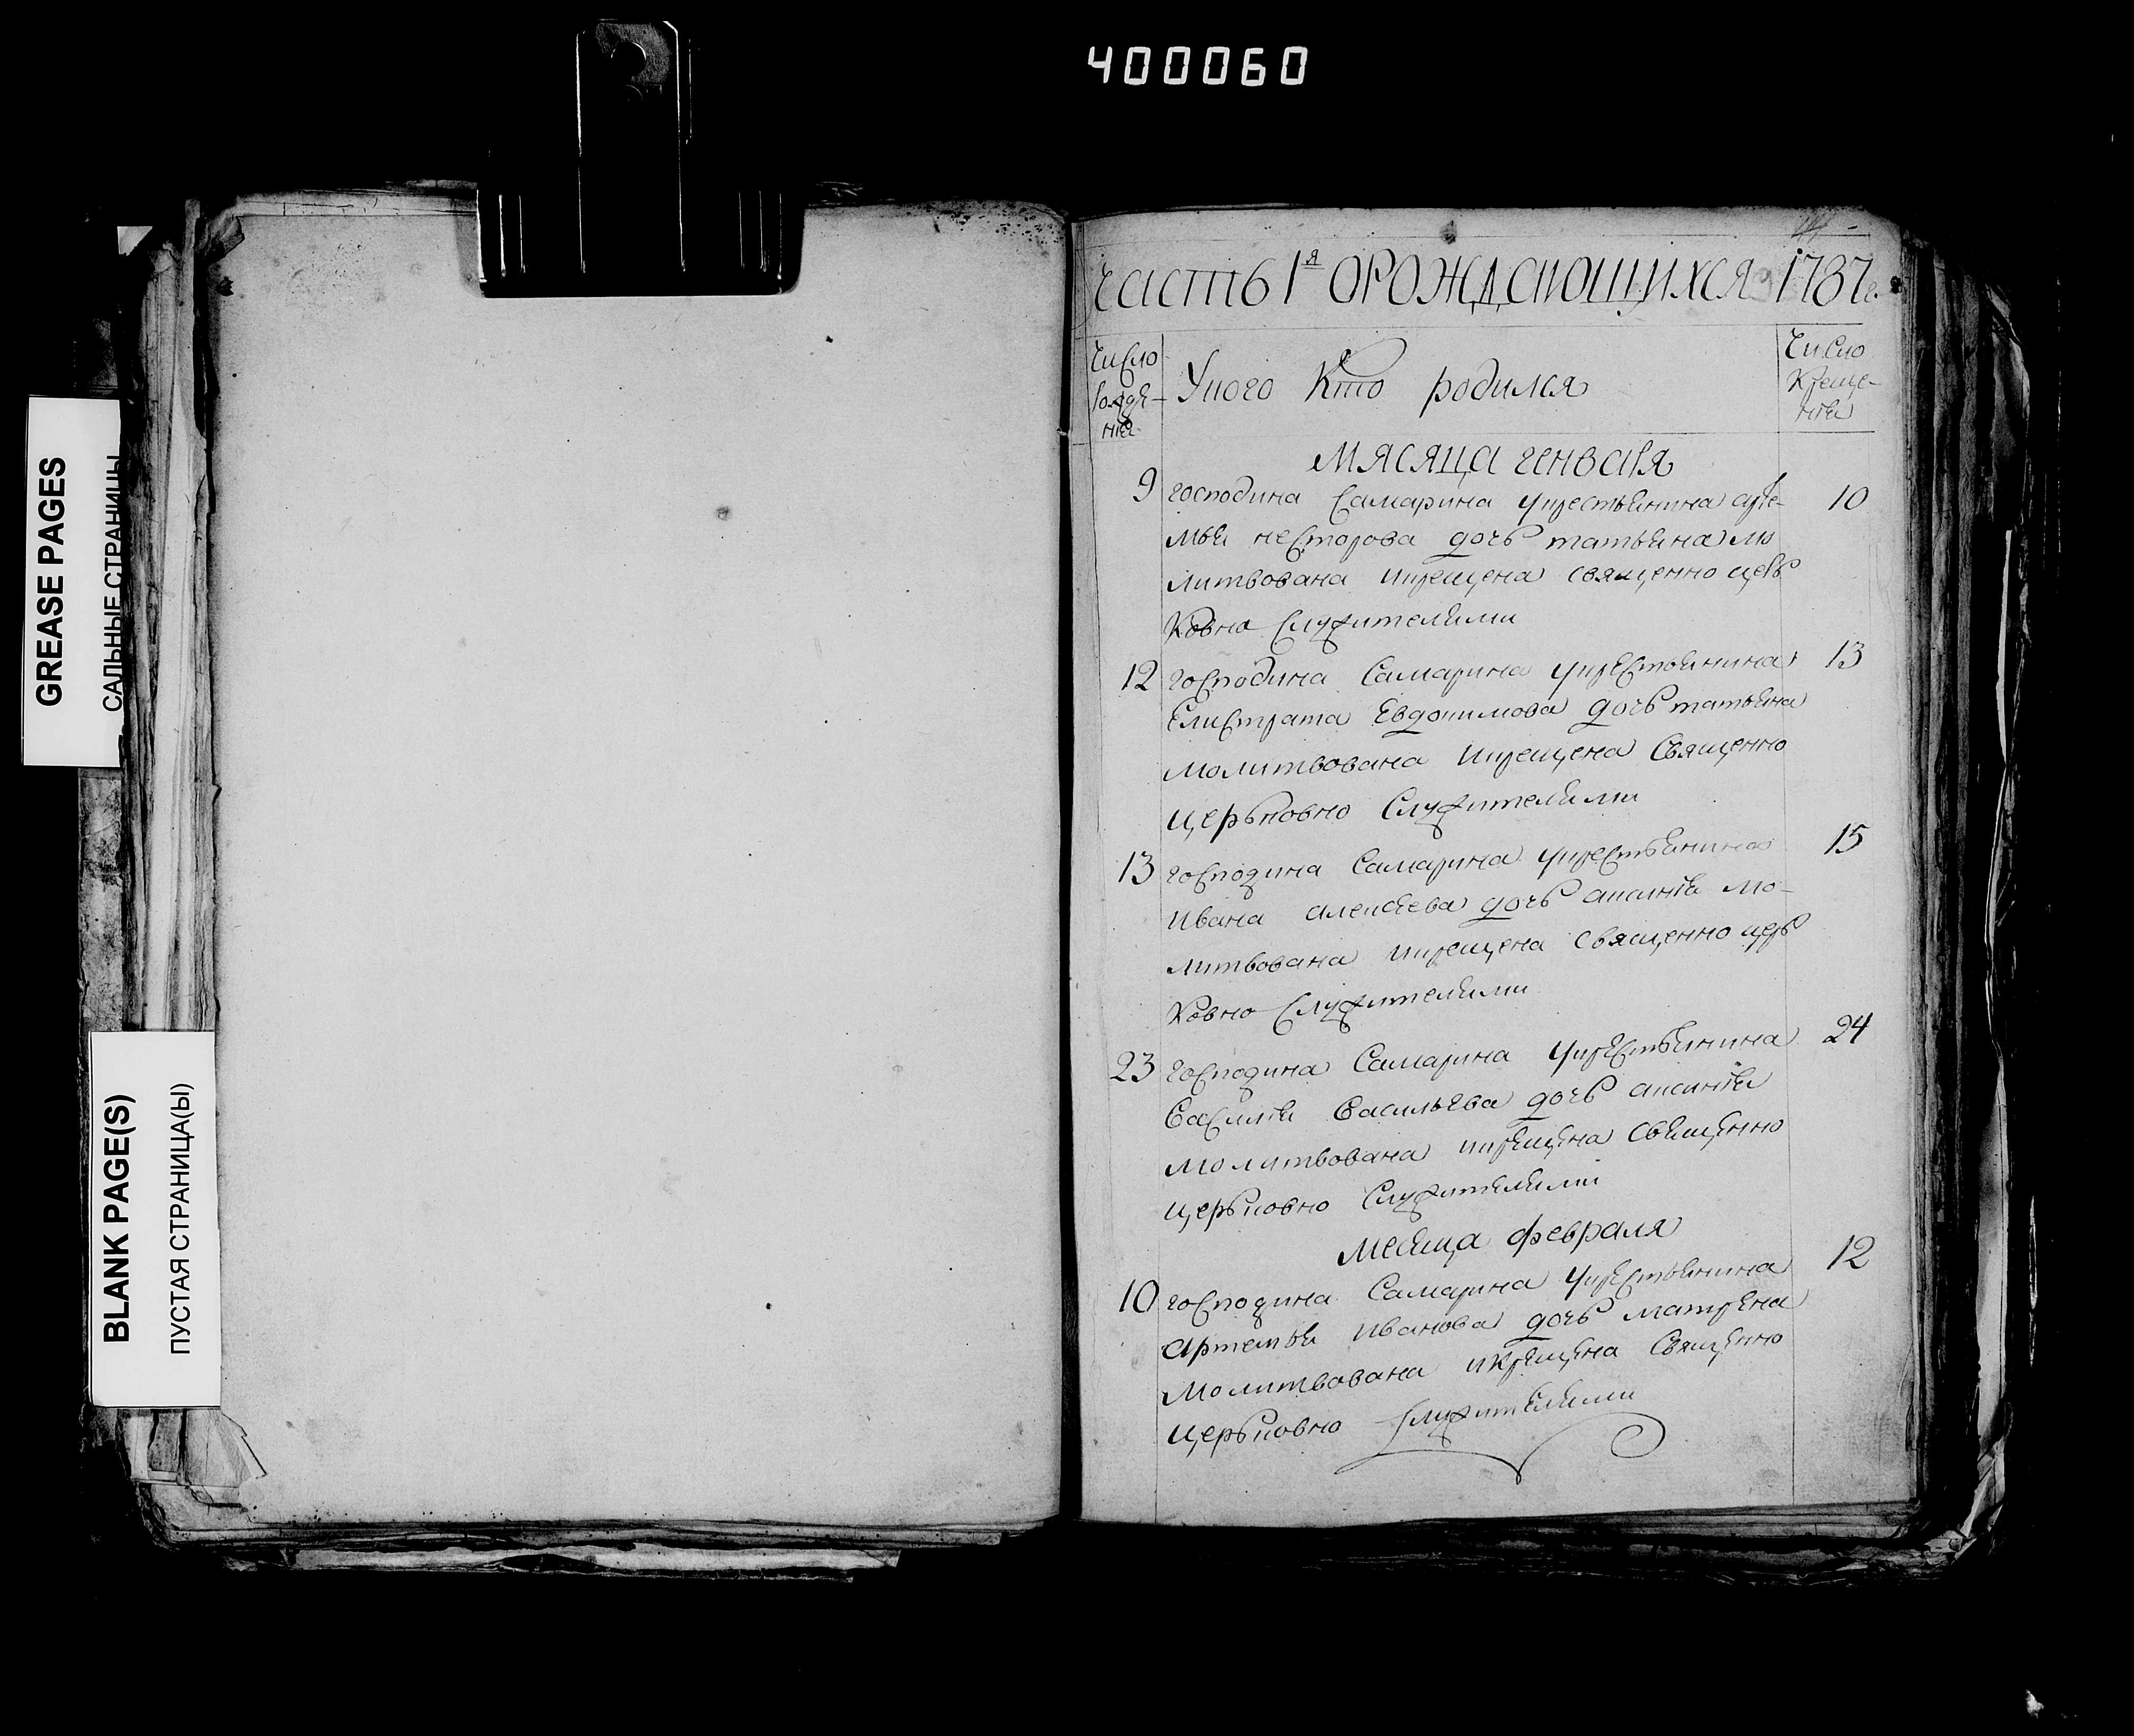 400060
GREASE PAGES
САЛЬНЫЕ СТРАНИЦЫ
BLANK PAGE(S)
ПУСТАЯ СТРАНИЦА(Ы)
часть 1я О РОЖДАЮЩИХСЯ 1787г.
Число рожде-ния
У кого кто родился
Число креще-ния
мясяца генваря
9 господина Самарина укрестьянина арте- 10
мья несторова дочь татьяна мо
литвована икрещена священно церь
ковно служителями
12 господина Самарина укрестьянина 13
елистрата евдокимова дочь татьяна
молитвована икрещена Священно
церьковно Служителями
13 господина Самарина укрестьянина 15
ивана алексеева дочь аксинья мо-
литвована икрещена священно церь
ковно служителями
23 господина Самарина укрестьянина 24
василья васильева дочь аксинья
молитвована икрещена священно
церьковно Служителями
месяца февраля
10 господина Самарина укрестьянина 12
артемья иванова дочь матрена
молитвована икрещена Священно
церьковно служителями